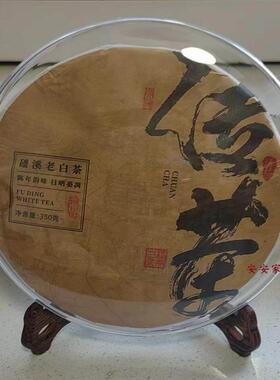 传茶
CHUAN
CHA
磻溪老白茶
陈年韵味 日晒萎凋
FU DING
WHITE TEA
净含量:350克
安安家